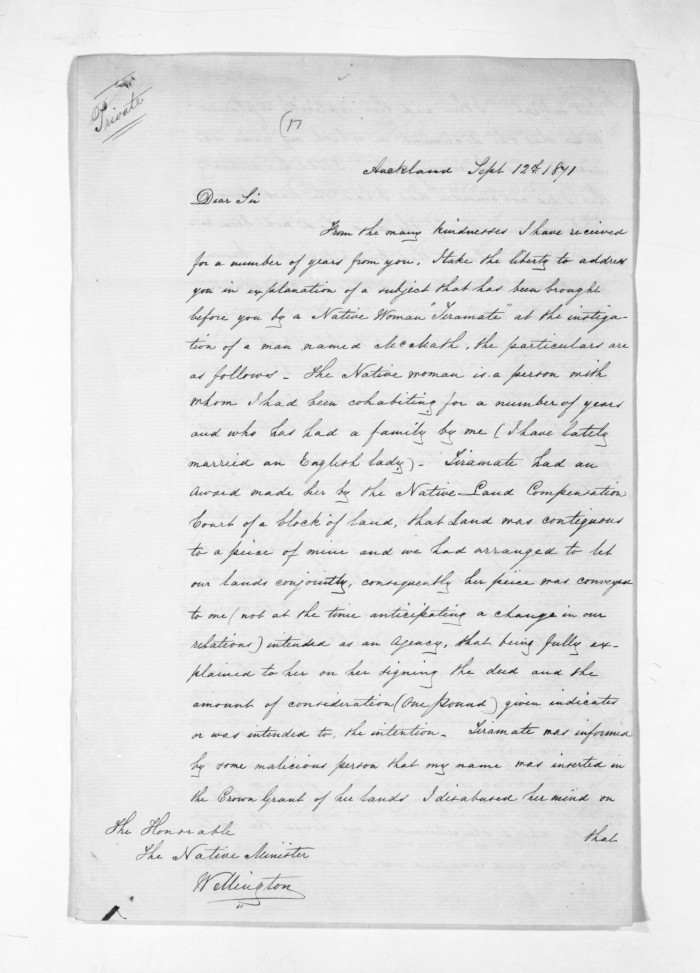 Private
(17
Auckland Sept 12th 1871
Dear Sir
From the many kindnesses I have received
for a number of years from you, I take the liberty to address
you in explanation of a subject that has been brought
before you by a Native Woman "Tiramate" at the instiga-
tion of a man named McMath, the particulars are
as follows - The Native woman is a person with
whom I had been cohabiting for a number of years
and who has had a family by me (I have lately
married an English lady) - Tiramate had an
award made her by the Native Land Compensation
Court of a block of land, that Land was contiguous
to a peice of mine and we had arranged to let
our lands conjointly, consequently her peice was conveyed
to me (not at the time anticipating a change in our
relations) intended as an Agency, that being fully ex-
plained to her on her signing the deed and the
amount of consideration (One Pound) given indicates
or was intended to, the intention - Tiramate was informed
by some malicious person that my name was inserted in
the Crown Grant of her Lands I disabused her mind on
that
The Honorable
The Native Minister
Wellington